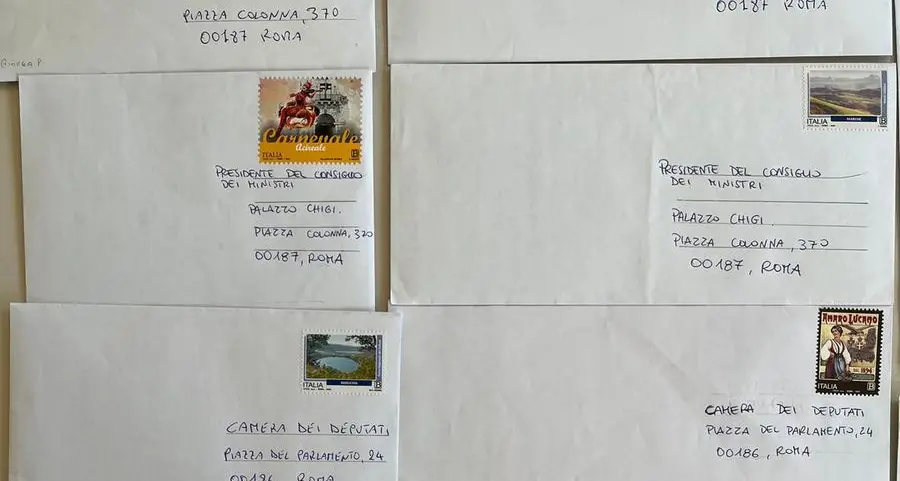 PIAZZA COLONNA, 370
00187 ROMA
00187 ROMA
Carnevale
Acireale
ITALIA B
PRESIDENTE DEL CONSIGLIO
DEI MINISTRI
PALAZZO CHIGI.
PIAZZA COLONNA, 370
00187, ROMA
ITALIA B
MARCHE
PRESIDENTE DEL CONSIGLIO
DEI MINISTRI
PALAZZO CHIGI
PIAZZA COLONNA, 370
00187, ROMA
ITALIA B
CAMERA DEI DEPUTATI
PIAZZA DEL PARLAMENTO, 24
00186 ROMA
AMARO LUCANO
DAL 1894
ITALIA B
CAMERA DEI DEPUTATI
PIAZZA DEL PARLAMENTO, 24
00186, ROMA